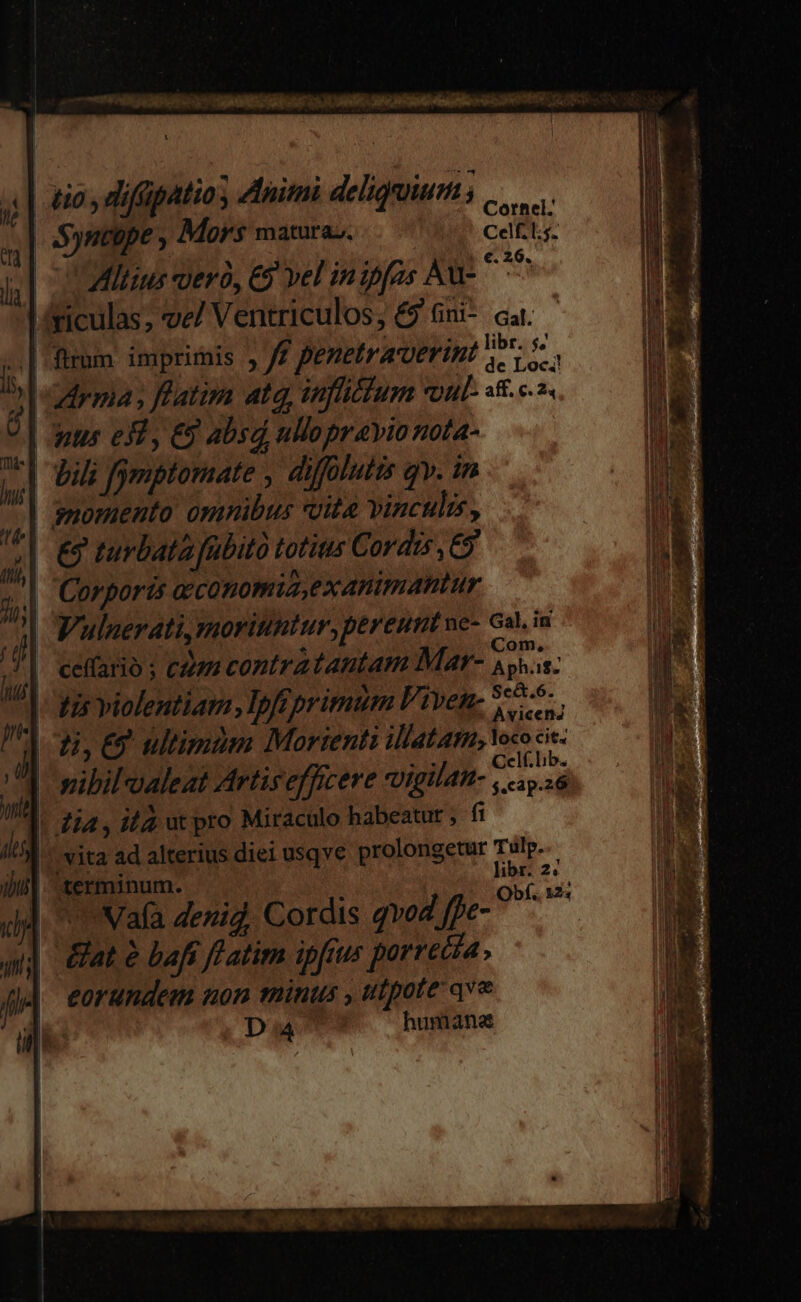 tio, dissipatio, Animi deliqvium,
Syncope, Mors matura.
Cornel.
Cels. l. 5.
c. 26.
Altius verò, & vel in ipsas Au-
riculas, vel Ventriculos, & sini-
strum imprimis, si penetraverint
Gal.
libr. 5.
de Loc.
aff. c. 2.
Arma, statim atq; inflictum vul-
nus est, & absq; ullo prævio nota-
bili symptomate, dissolutis qv. in
momento omnibus vitæ vinculis,
& turbatâ subitò totius Cordis, &
Corporis œconomiâ, exanimantur
Vulnerati, moriuntur, pereunt ne-
cessariò; cùm contrà tantam Mar-
tis violentiam, Ipsi primùm Viven-
ti, & ultimùm Morienti illatam,
nihil valeat Artis efficere vigilan-
tia, ità ut pro Miraculo habeatur, si
vita ad alterius diei usqve prolongetur
terminum.
Gal. in
Com.
Aph. 18.
Sect. 6.
Avicen.
loco cit.
Cels. lib.
5. cap. 26
Tulp.
libr. 2.
Obs. 12.
Vasa deniq; Cordis qvod spe-
ctat è basi statim ipsius porrecta,
eorundem non minus, utpote qvæ
D 4
humanæ